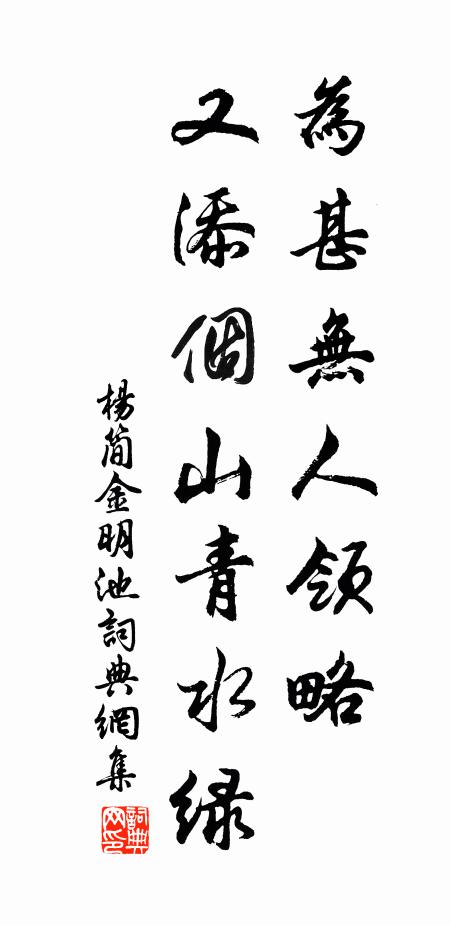 為甚無人領略
又添個山青水緑
楊简金明池詞典網集
詞典网印